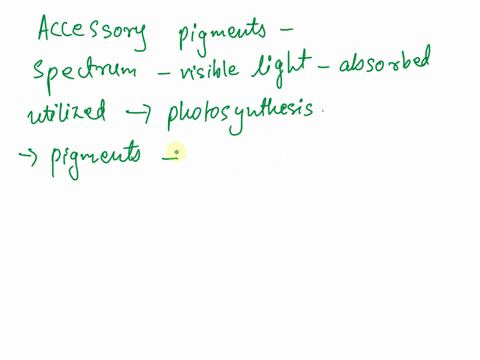 Accessory pigments -
spectrum - visible light - absorbed
utilized → photosynthesis.
→ pigments -